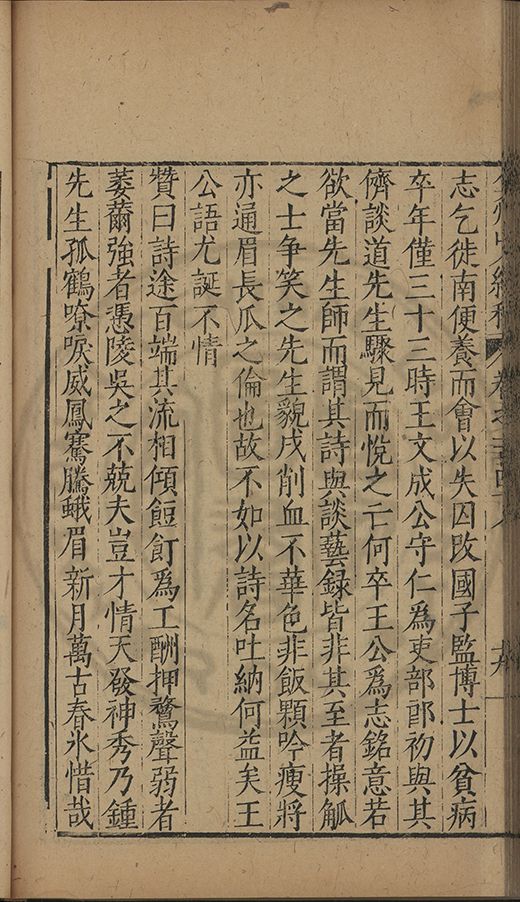 志乞徙南便養而會以失囚改國子監博士以貧病
卒年僅三十三時王文成公守仁爲吏部郎初與其
儕談道先生驟見而悅之亡何卒王公爲志銘意若
欲當先生師而謂其詩與談藝録皆非其至者操觚
之士争笑之先生貌戌削血不華色非飯顆吟瘦將
亦通眉長瓜之倫也故不如以詩名吐納何益矣王
公語尤誕不情
贊曰詩途百端其流相傾餖飣爲工酬押鶩聲弱者
萎薾強者憑陵吳之不兢夫豈才情天發神秀乃鍾
先生孤鶴嘹唳威鳳騫騰蛾眉新月萬古春氷惜哉